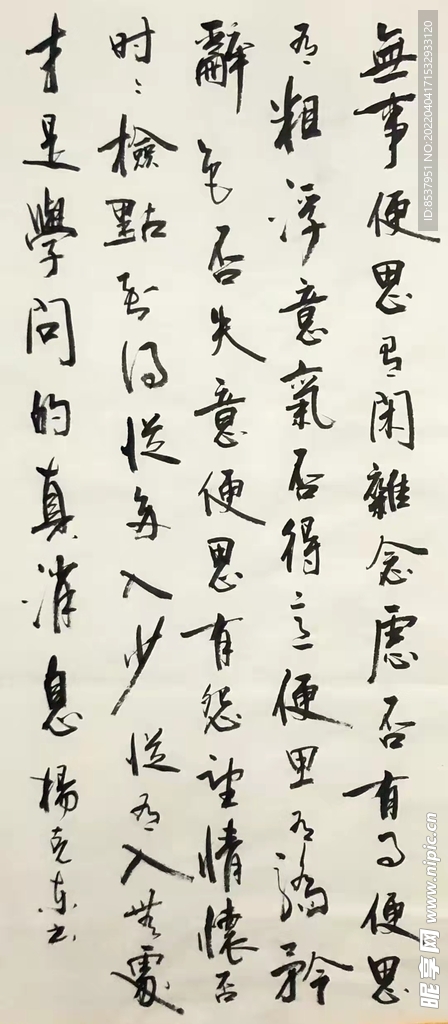 無事便思有閑雜念慮否有事便思
有粗浮意氣否得意便思有驕矜
辭色否失意便思有怨望情懷否
时々檢點到得從多入少從有入無處
才是學問的真消息 楊克东书
ID:8537951 NO:20220404171532933120
昵享网 www.nipic.cn